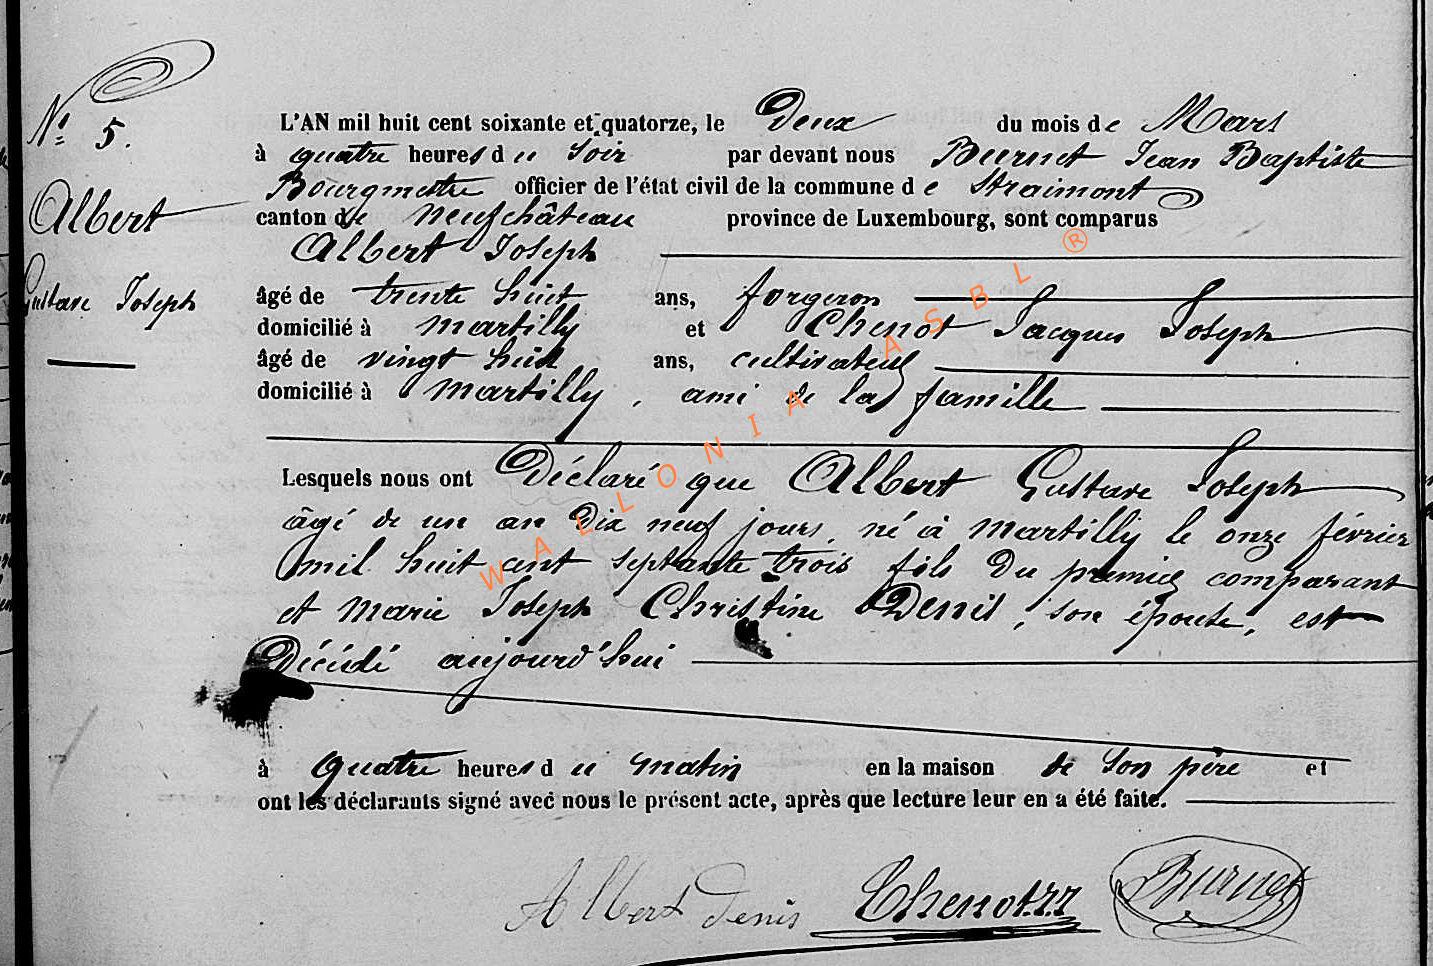 N° 5.
Albert
Gustave Joseph
L'AN mil huit cent soixante et quatorze, le Deux du mois de Mars
à quatre heures du Soir par devant nous Burnet Jean Baptiste
Bourgmestre officier de l'état civil de la commune de Straimont
canton de Neufchâteau province de Luxembourg, sont comparus
Albert Joseph
âgé de trente huit ans, forgeron
domicilié à Martilly et Chenot Jacques Joseph
âgé de vingt huit ans, cultivateur
domicilié à Martilly, ami de la famille
Lesquels nous ont Déclaré que Albert Gustave Joseph
âgé de un an Dix neuf jours, né à Martilly le onze février
mil huit cent septante trois fils Du premier comparant
et Marie Joseph Christine Denis, son épouse, est
Décédé aujourd'hui
à quatre heures du matin en la maison de son père et
ont les déclarants signé avec nous le présent acte, après que lecture leur en a été faite.
Albert Denis Chenot J.J. Burnet
WALLONIA ASBL ®